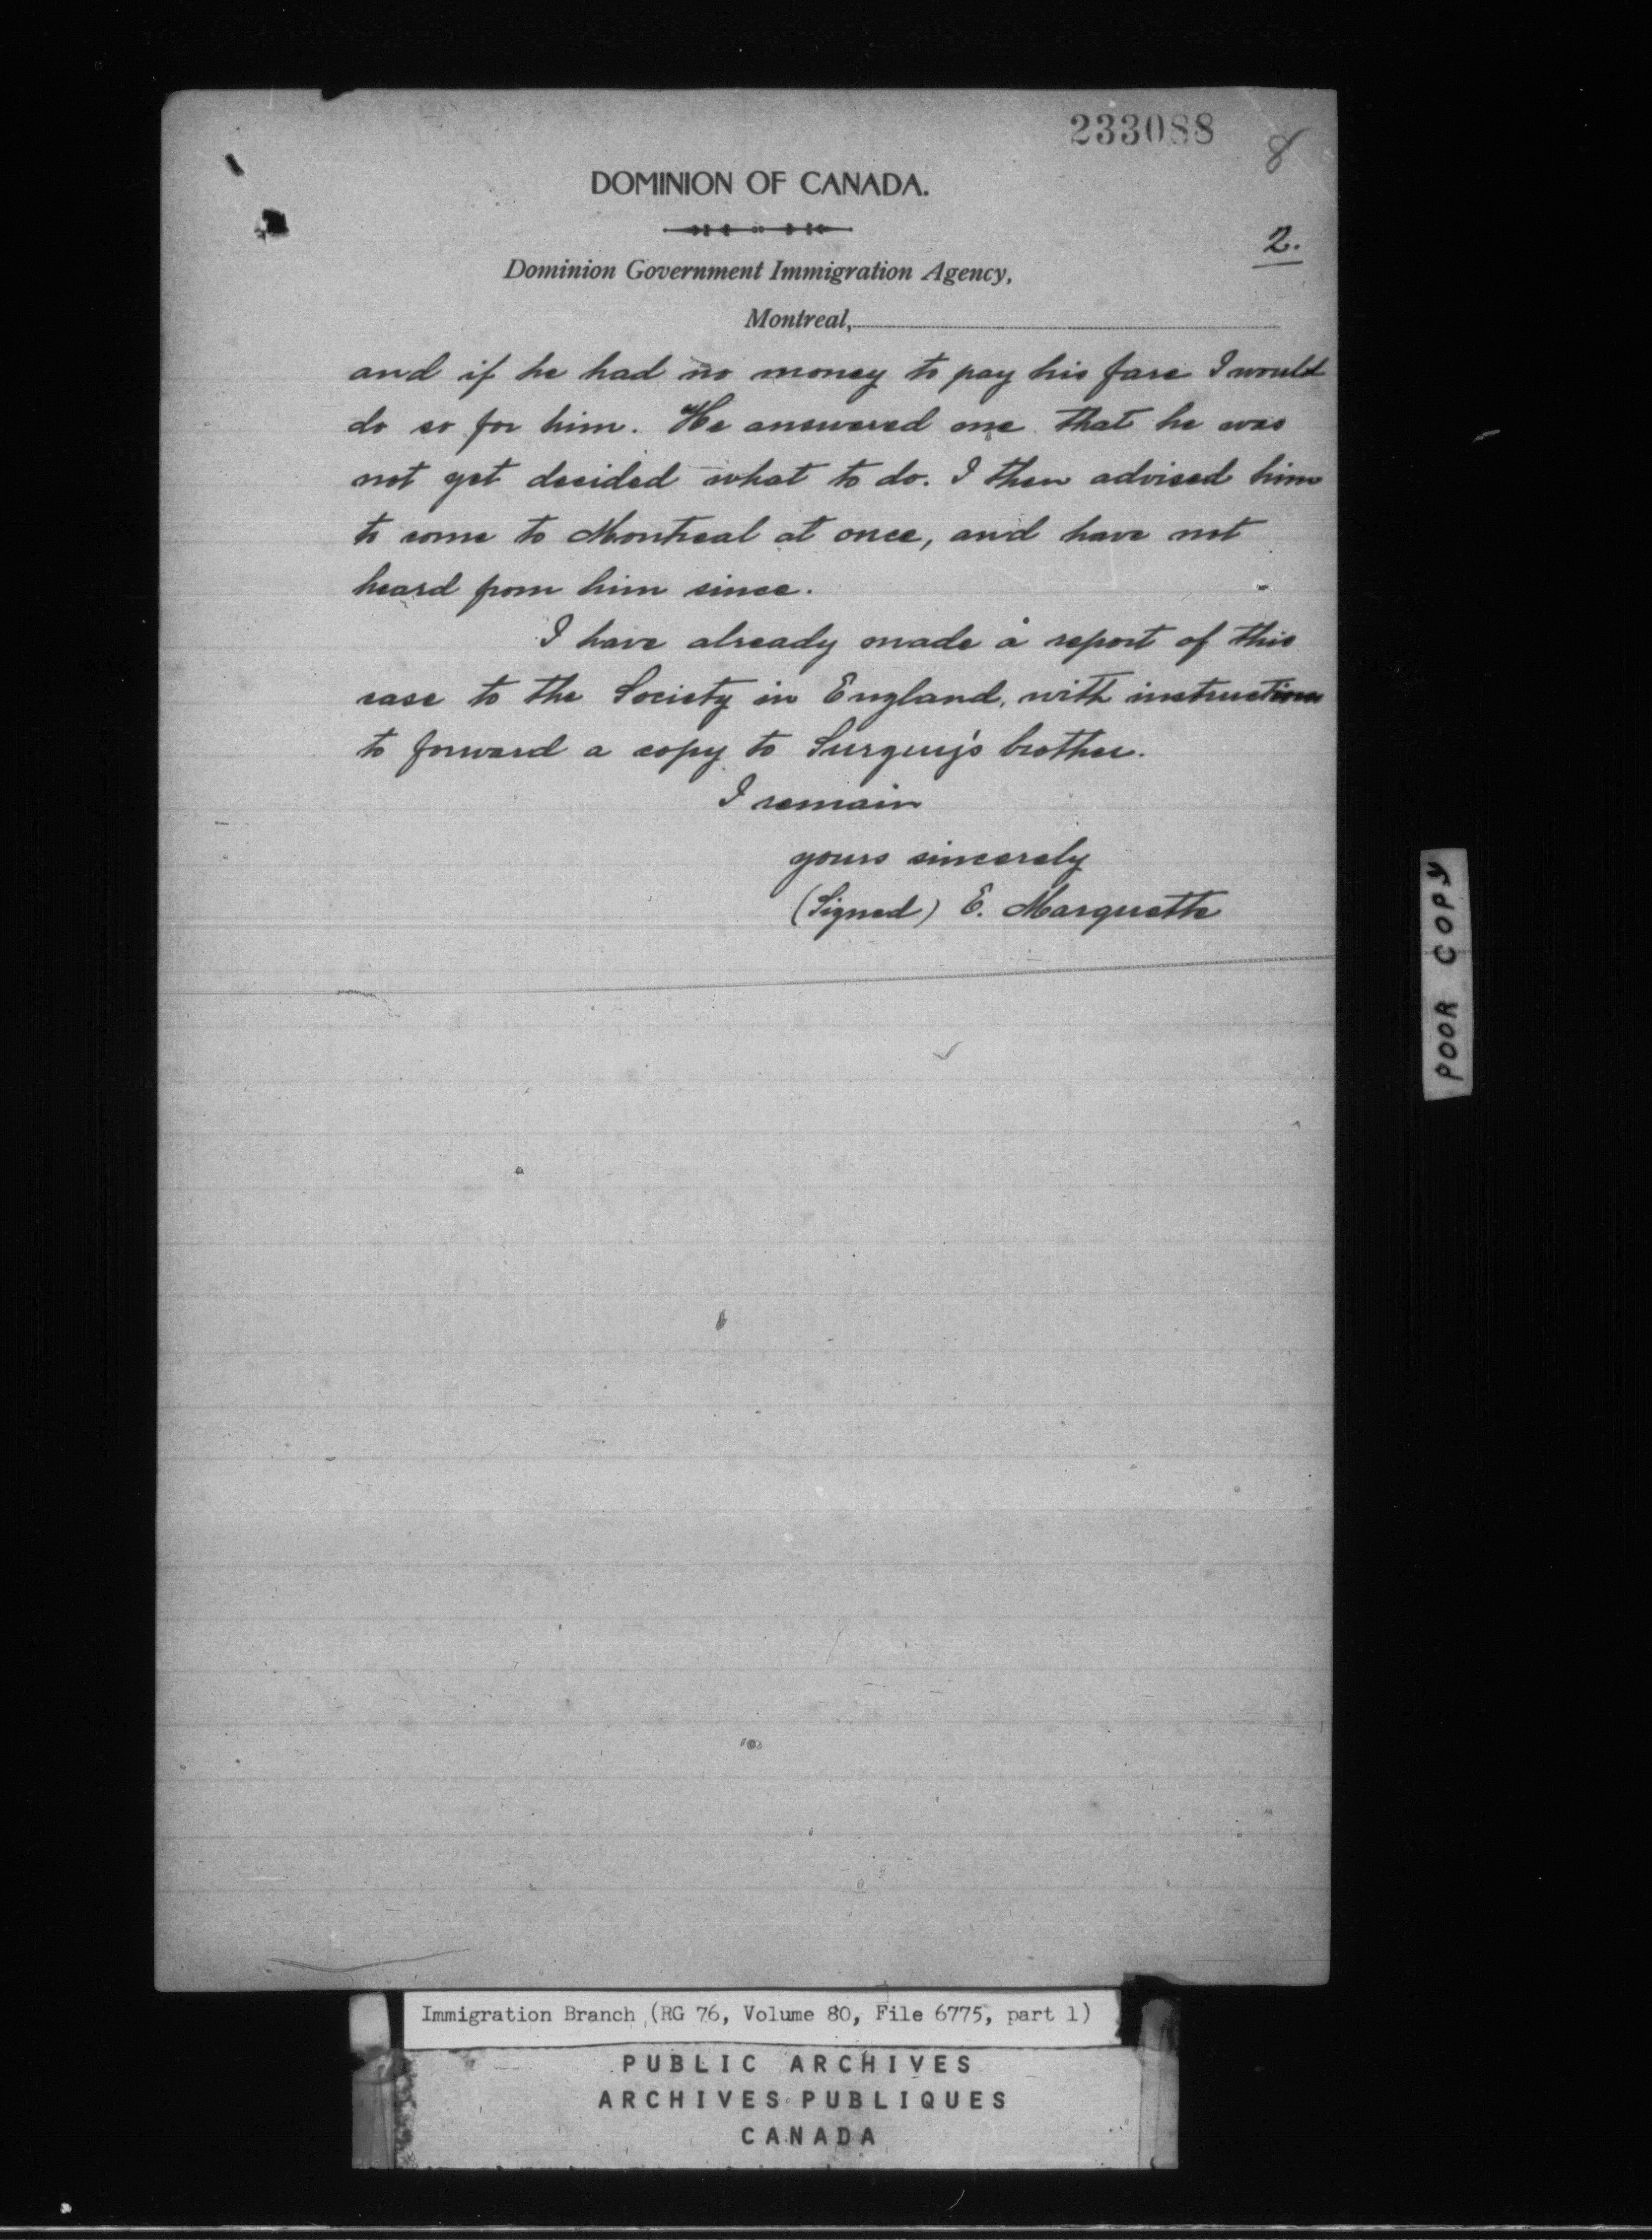 233088
8
DOMINION OF CANADA.
2.
Dominion Government Immigration Agency,
Montreal,
and if he had no money to pay his fare I would
do so for him. He answered me that he was
not yet decided what to do. I then advised him
to come to Montreal at once, and have not
heard from him since.
I have already made a report of this
case to the Society in England, with instructions
to forward a copy to brother.
I remain
yours sincerely
(Signed) E. Marquette
POOR COPY
Immigration Branch (RG 76, Volume 80, File 6775, part 1)
PUBLIC ARCHIVES
ARCHIVES PUBLIQUES
CANADA